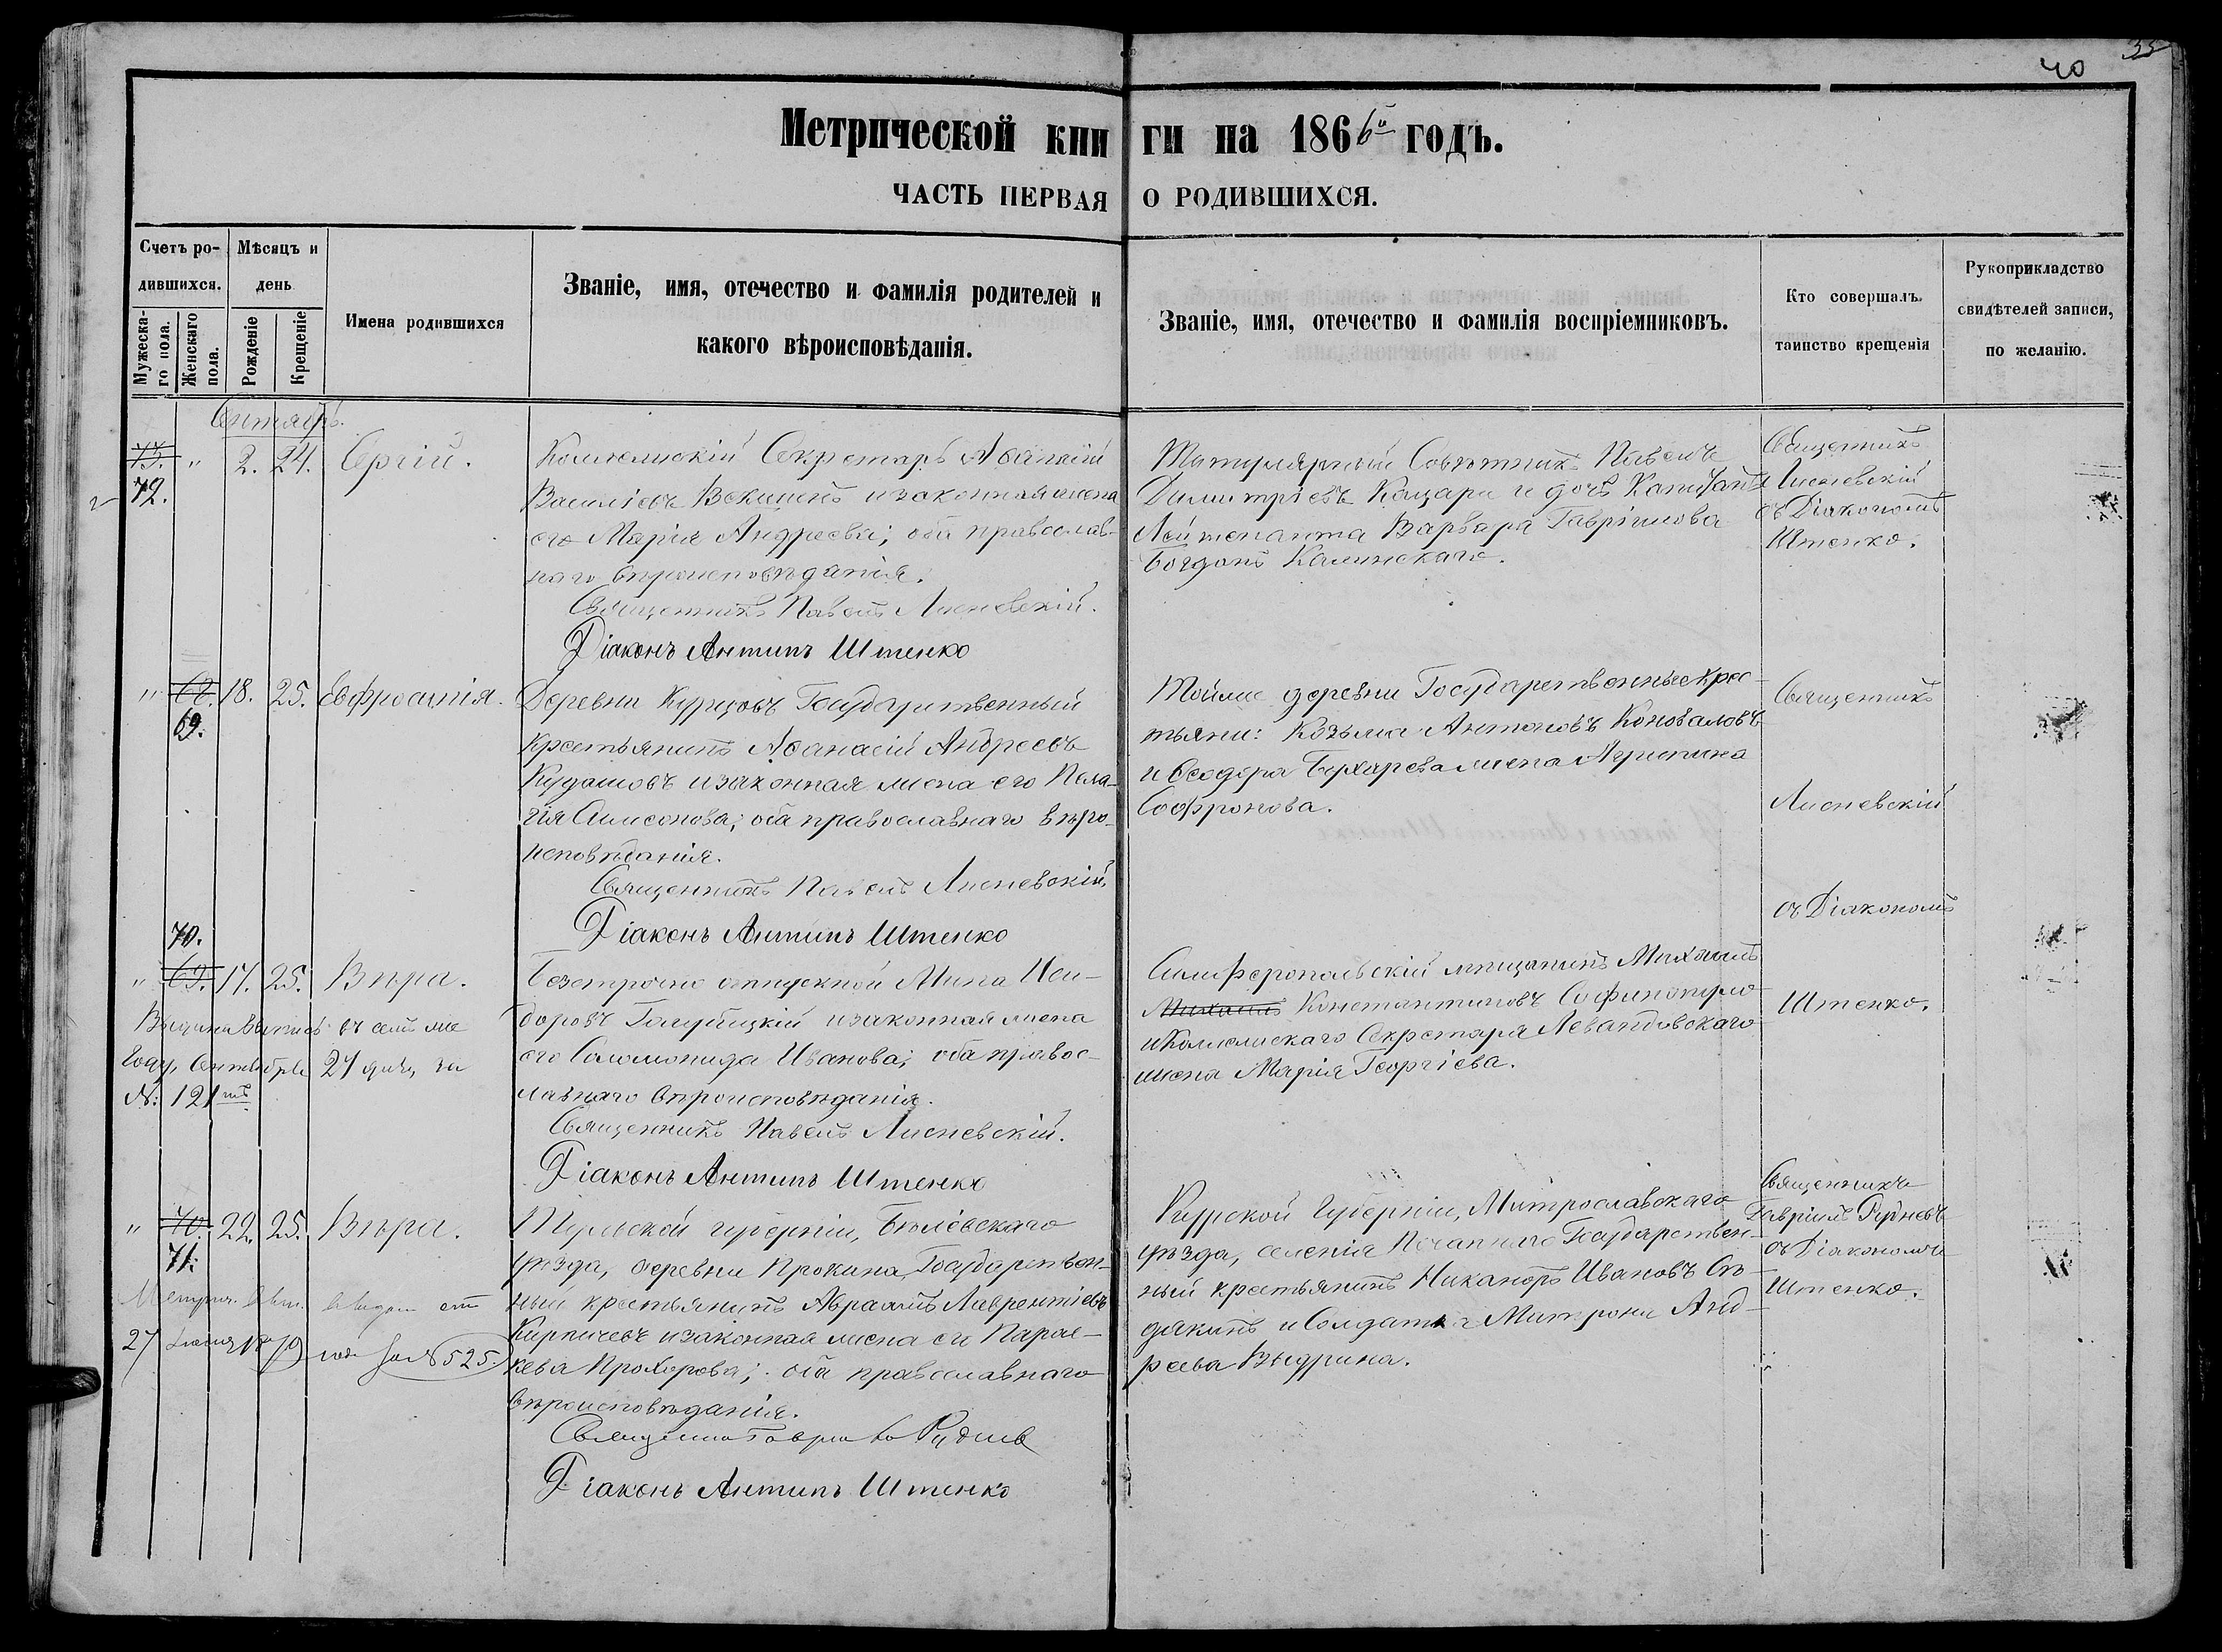 35
40
Метрической книги на 1866й годъ.
ЧАСТЬ ПЕРВАЯ О РОДИВШИХСЯ.
Счетъ родившихся.
Мужескаго пола.
Женскаго пола.
Мѣсяцъ и день
Рожденіе
Крещеніе
Имена родившихся
Званіе, имя, отечество и фамилія родителей и
какого вѣроисповѣданія.
Званіе, имя, отечество и фамилія воспріемниковъ.
Кто совершалъ
таинство крещенія
Рукоприкладство
свидѣтелей записи,
по желанію.
Сентябрь.
73. " 2. 24. Сергій.
72.
Коллежскій Секретарь Аѳанасій
Василіевъ и законная жена
его Марія Андреева; оба православ-
наго вѣроисповѣданія.
Священникъ Павелъ Лисневскій.
Діаконъ Антипъ Штенко
Титулярный Совѣтникъ Павелъ
Димитріевъ Кацари и дочь Капитанъ
Лейтенанта Варвара Гавріилова
Богданъ Калинскаго.
Священникъ
Лисневскій
съ Діакономъ
Штенко.
" 68. 18. 25. Евфросинія.
69.
Деревни Курцовъ Государственный
крестьянинъ Аѳанасій Андреевъ
Кудашовъ и законная жена его Пела-
гія Симеонова; оба православнаго вѣро-
исповѣданія.
Священникъ Павелъ Лисневскій.
Діаконъ Антипъ Штенко
Тойже деревни Государственные крес-
тьяни: Козьма Антоновъ Коноваловъ
и Ѳеодора Бухарева жена Агрипина
Софронова.
Священникъ
Лисневскій
съ Діакономъ
Штенко.
70.
" 69. 17. 25. Вѣра.
Выдана выпись въ семъ же
году, Сентября 27 дня, за
№: 121мъ
Безсрочно отпускной Мина Иси-
доровъ Голубицкій и законная жена
его Соломонида Иванова; оба правос-
лавнаго вѣроисповѣданія.
Священникъ Павелъ Лисневскій.
Діаконъ Антипъ Штенко
Симферопольскій мѣщанинъ Михаилъ
Михаилъ Константиновъ Софинопуло
и Коллежскаго Секретаря Левандовскаго
жена Марія Георгіева.
" 70. 22. 25. Вѣра.
71.
27 18 70 года за № 525.
Тульской губерніи, Бѣлевскаго
уѣзда, деревни Прокина, Государствен-
ный крестьянинъ Авраамъ Лаврентіевъ
Кирпичевъ и законная жена его Парас-
кева Прохорова; оба православнаго
вѣроисповѣданія.
Священникъ Гавріилъ Руднев
Діаконъ Антипъ Штенко
Курской Губерніи, Митрославскаго
уѣзда, селенія Государствен-
ный крестьянинъ Никаноръ Ивановъ Сѣ-
дякинъ и Солдатка Матрона Анд-
реева Выдрина.
Священникъ
Гавріилъ Рудневъ
съ Діакономъ
Штенко.